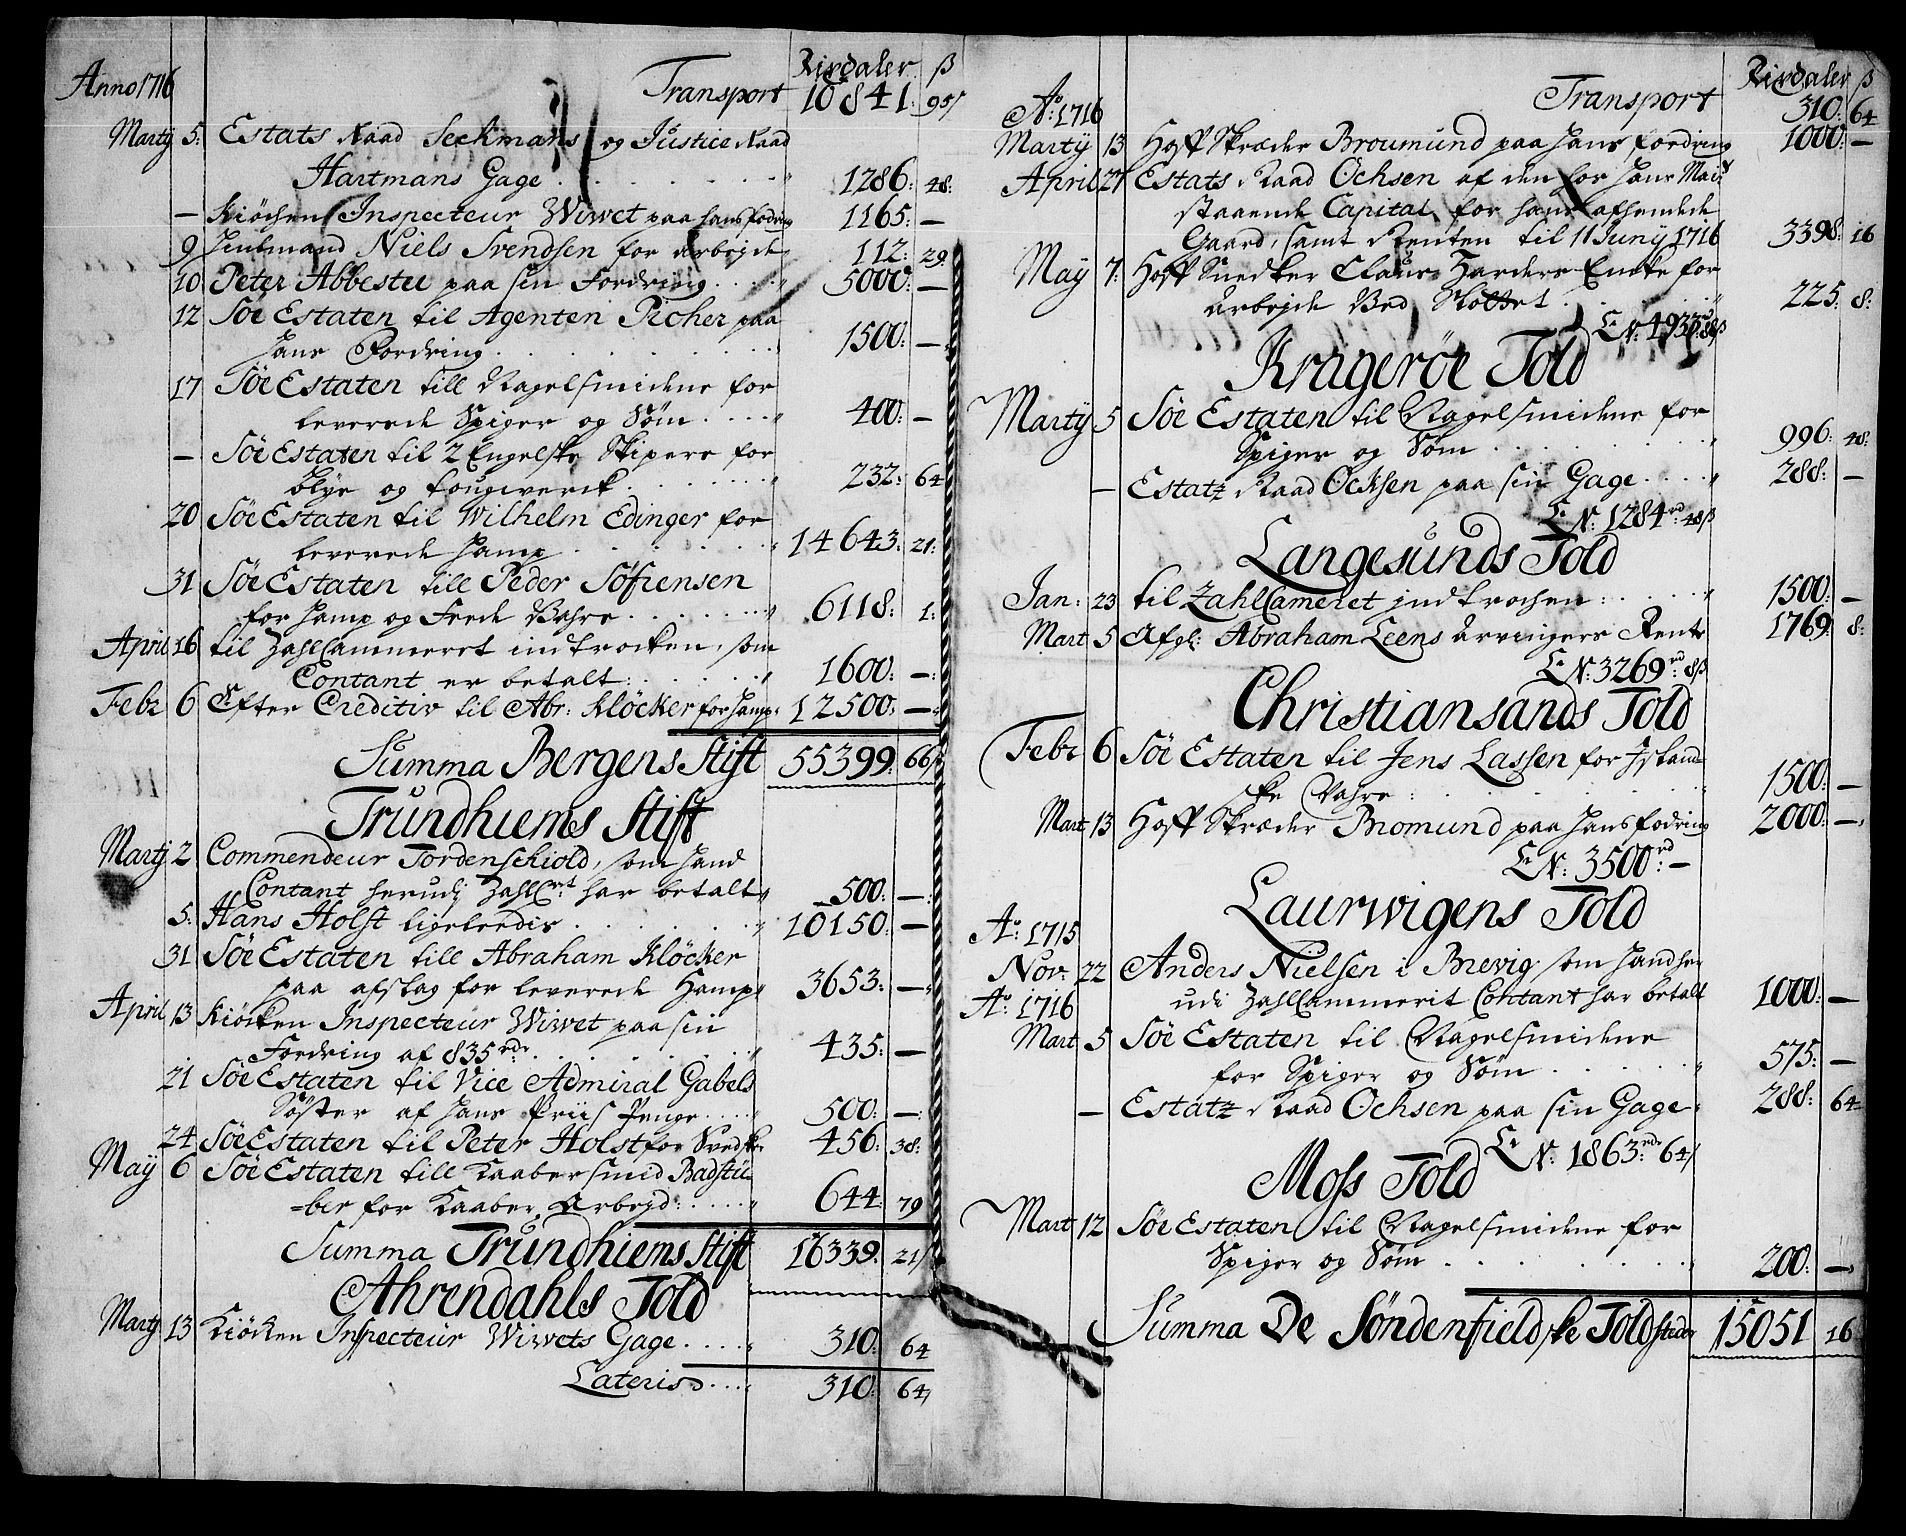 Anno 1716
Rixdaler ß
Transport 10841: 95/
Martÿ 5: Estats Raad Seckmans og Justice Raad
Hartmans Gage 1286: 48:
— Kiöchen Inspecteur Wiwet paa hans fodring 1165: —
9 Hiulmand Niels Svendsen for arbejde 112: 29
10 Peter Abbestee paa sin Fordring 5000: —
12 Söe Estaten til Agenten Picher paa
hans Fordring 1500: —
17 Söe Estaten till Nagelsmidene for
leverede Spiger og Söm 400: —
— Söe Estaten til 2 Engelske Skipere for
blye og tougwerck 232: 64
20 Söe Estaten til Wilhelm Edinger for
leverede Hamp 14643: 21:
31 Söe Estaten till Peder Söfrensen
for Hamp og Fede Vahre 6118: 1:
April 16 til ZahlCammeret indtrocken, som
Contant er betalt 1600: —
Febr 6 Efter Creditiv til Abr: Klöcker for Hamp: 12500: —
Summa Bergens Stift 55399: 66/
Trundhiems Stift
Martj 2 Commendeur Tordenschiold, som hand
Contant herudj ZahlCmt har betalt 500: —
5: Hans Holst ligeleedis 10150: —
31 Söe Estaten till Abraham Klöcker
paa afslag for leverede Hamp 3653: —
April 13 Kiöcken Inspecteur Wiwet paa sin
Fordring af 835 rdr 435: —
21 Söe Estaten til Vice Admiral Gabels
Söster af hans Priis Penge 500: —
24 Söe Estaten til Peter Holst for 456: 38:
Maÿ 6 Söe Estaten till Kaabersmid Badstü-
=ber for Kaaber Arbejd 644: 79
Summa Trundhiems Stift 16339: 21/
Ahrendahls Told
Martj 13 Kiöcken Inspecteur Wiwets Gage 310: 64
Lateris 310: 64/
Rixdaler ß
Ao: 1716 Transport 310: 64
Martÿ 13 Hoff Skræder Broumund paa hans fordring 1000: —
April 27 Estats Raad Ochsen af den hos hans Mait
staaende Capital for hans afhendede
Gaard, samt Renten til 11 Junÿ 1716 3398: 16
Maÿ 7: Hoff Snedker Claus Harders Encke for
arbejde Ved Slottet 225: 8:
L N: 4933 rd: 88ß
Krageröe Told
Martÿ 5 Söe Estaten til Nagelsmidene for
Spiger og Söm 996: 48:
— Estatz Raad Ocksen paa sin Gage 288: —
L N: 1284 rd: 48ß
Langesunds Told
Jan: 23 til ZahlCameret jndtrochen 1500: —
Mart 5 Afgl: Abraham Leens Arvingers Rente 1769: 8:
L N: 3269 rd: 8ß
Christiansands Told
Febr 6 Söe Estaten til Jens Lassen for Jsland-
ske Vahre 1500: —
Mart 13 Hoff Skræder Bromund paa hans fodring 2000: —
L N: 3500 rd: —
Laurwigens Told
Ao: 1715
Nov: 22 Anders Nielsen i Brevig som hand her
udi ZahlCammerit Contant har betalt 1000: —
Ao: 1716
Mart 5 Söe Estaten til Nagelsmidene
for Spiger og Söm 575: —
— Estatz Raad Ochsen paa sin Gage 288: 64
L N: 1863 rdr: 64/
Moss Told
Mart 12 Söe Estaten til Nagelsmidene for
Spiger og Söm 200: —
Summa De Söndenfieldske Toldsteder 15051 16